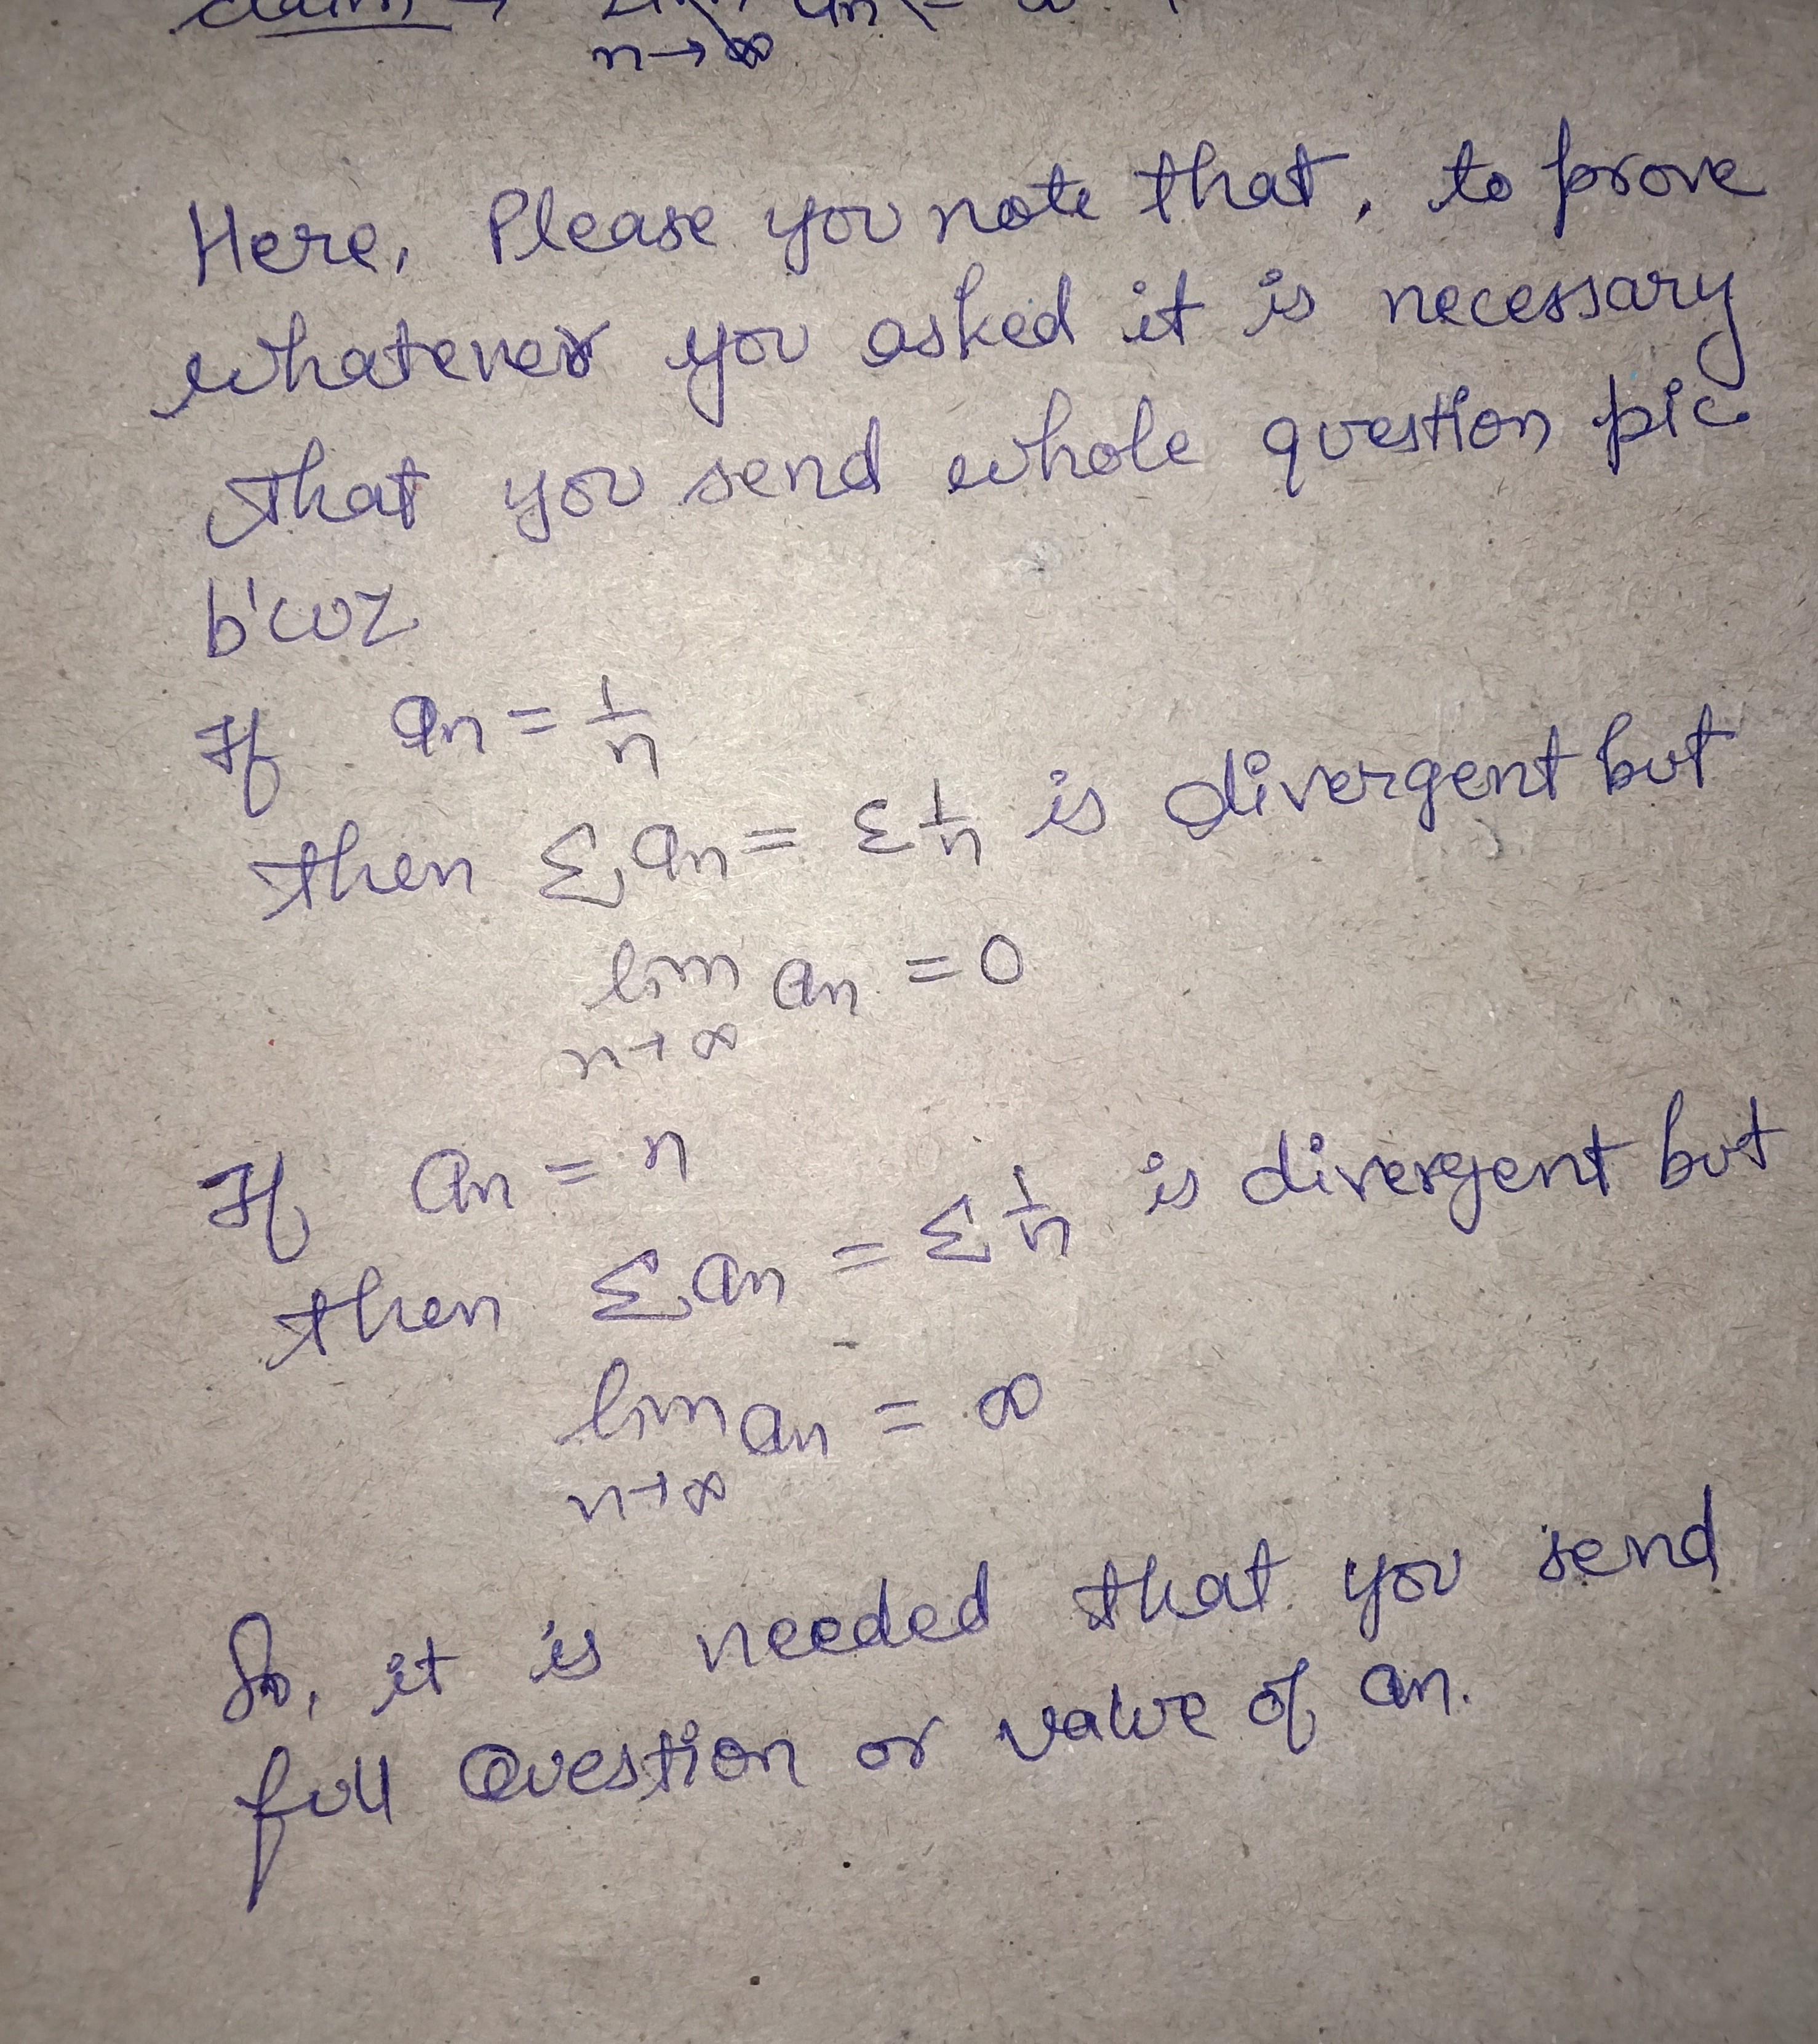 claim →
n→∞
Here, Please you note that, to prove
whatever you asked it is necessary
that you send whole question pic
b'coz
If an = 1/n
then Σ an = Σ 1/n is divergent but
lim an = 0
n→∞
If an = n
then Σ an = Σ 1/n is divergent but
lim an = ∞
n→∞
So, it is needed that you send
full Question or value of an.